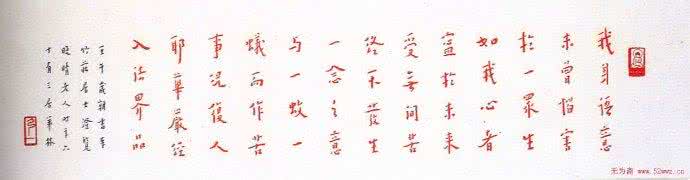 我身語意
未曾惱害
於一眾生
如我心者
寧於未來
受無間苦
終不發生
一念之意
與一蚊一
蟻而作苦
事況復人
耶華嚴經
入法界品
壬午歲朝書奉
竹莊居士澄覽
晚晴老人時年六
十有三居林
无为斋 www.52wwz.cn